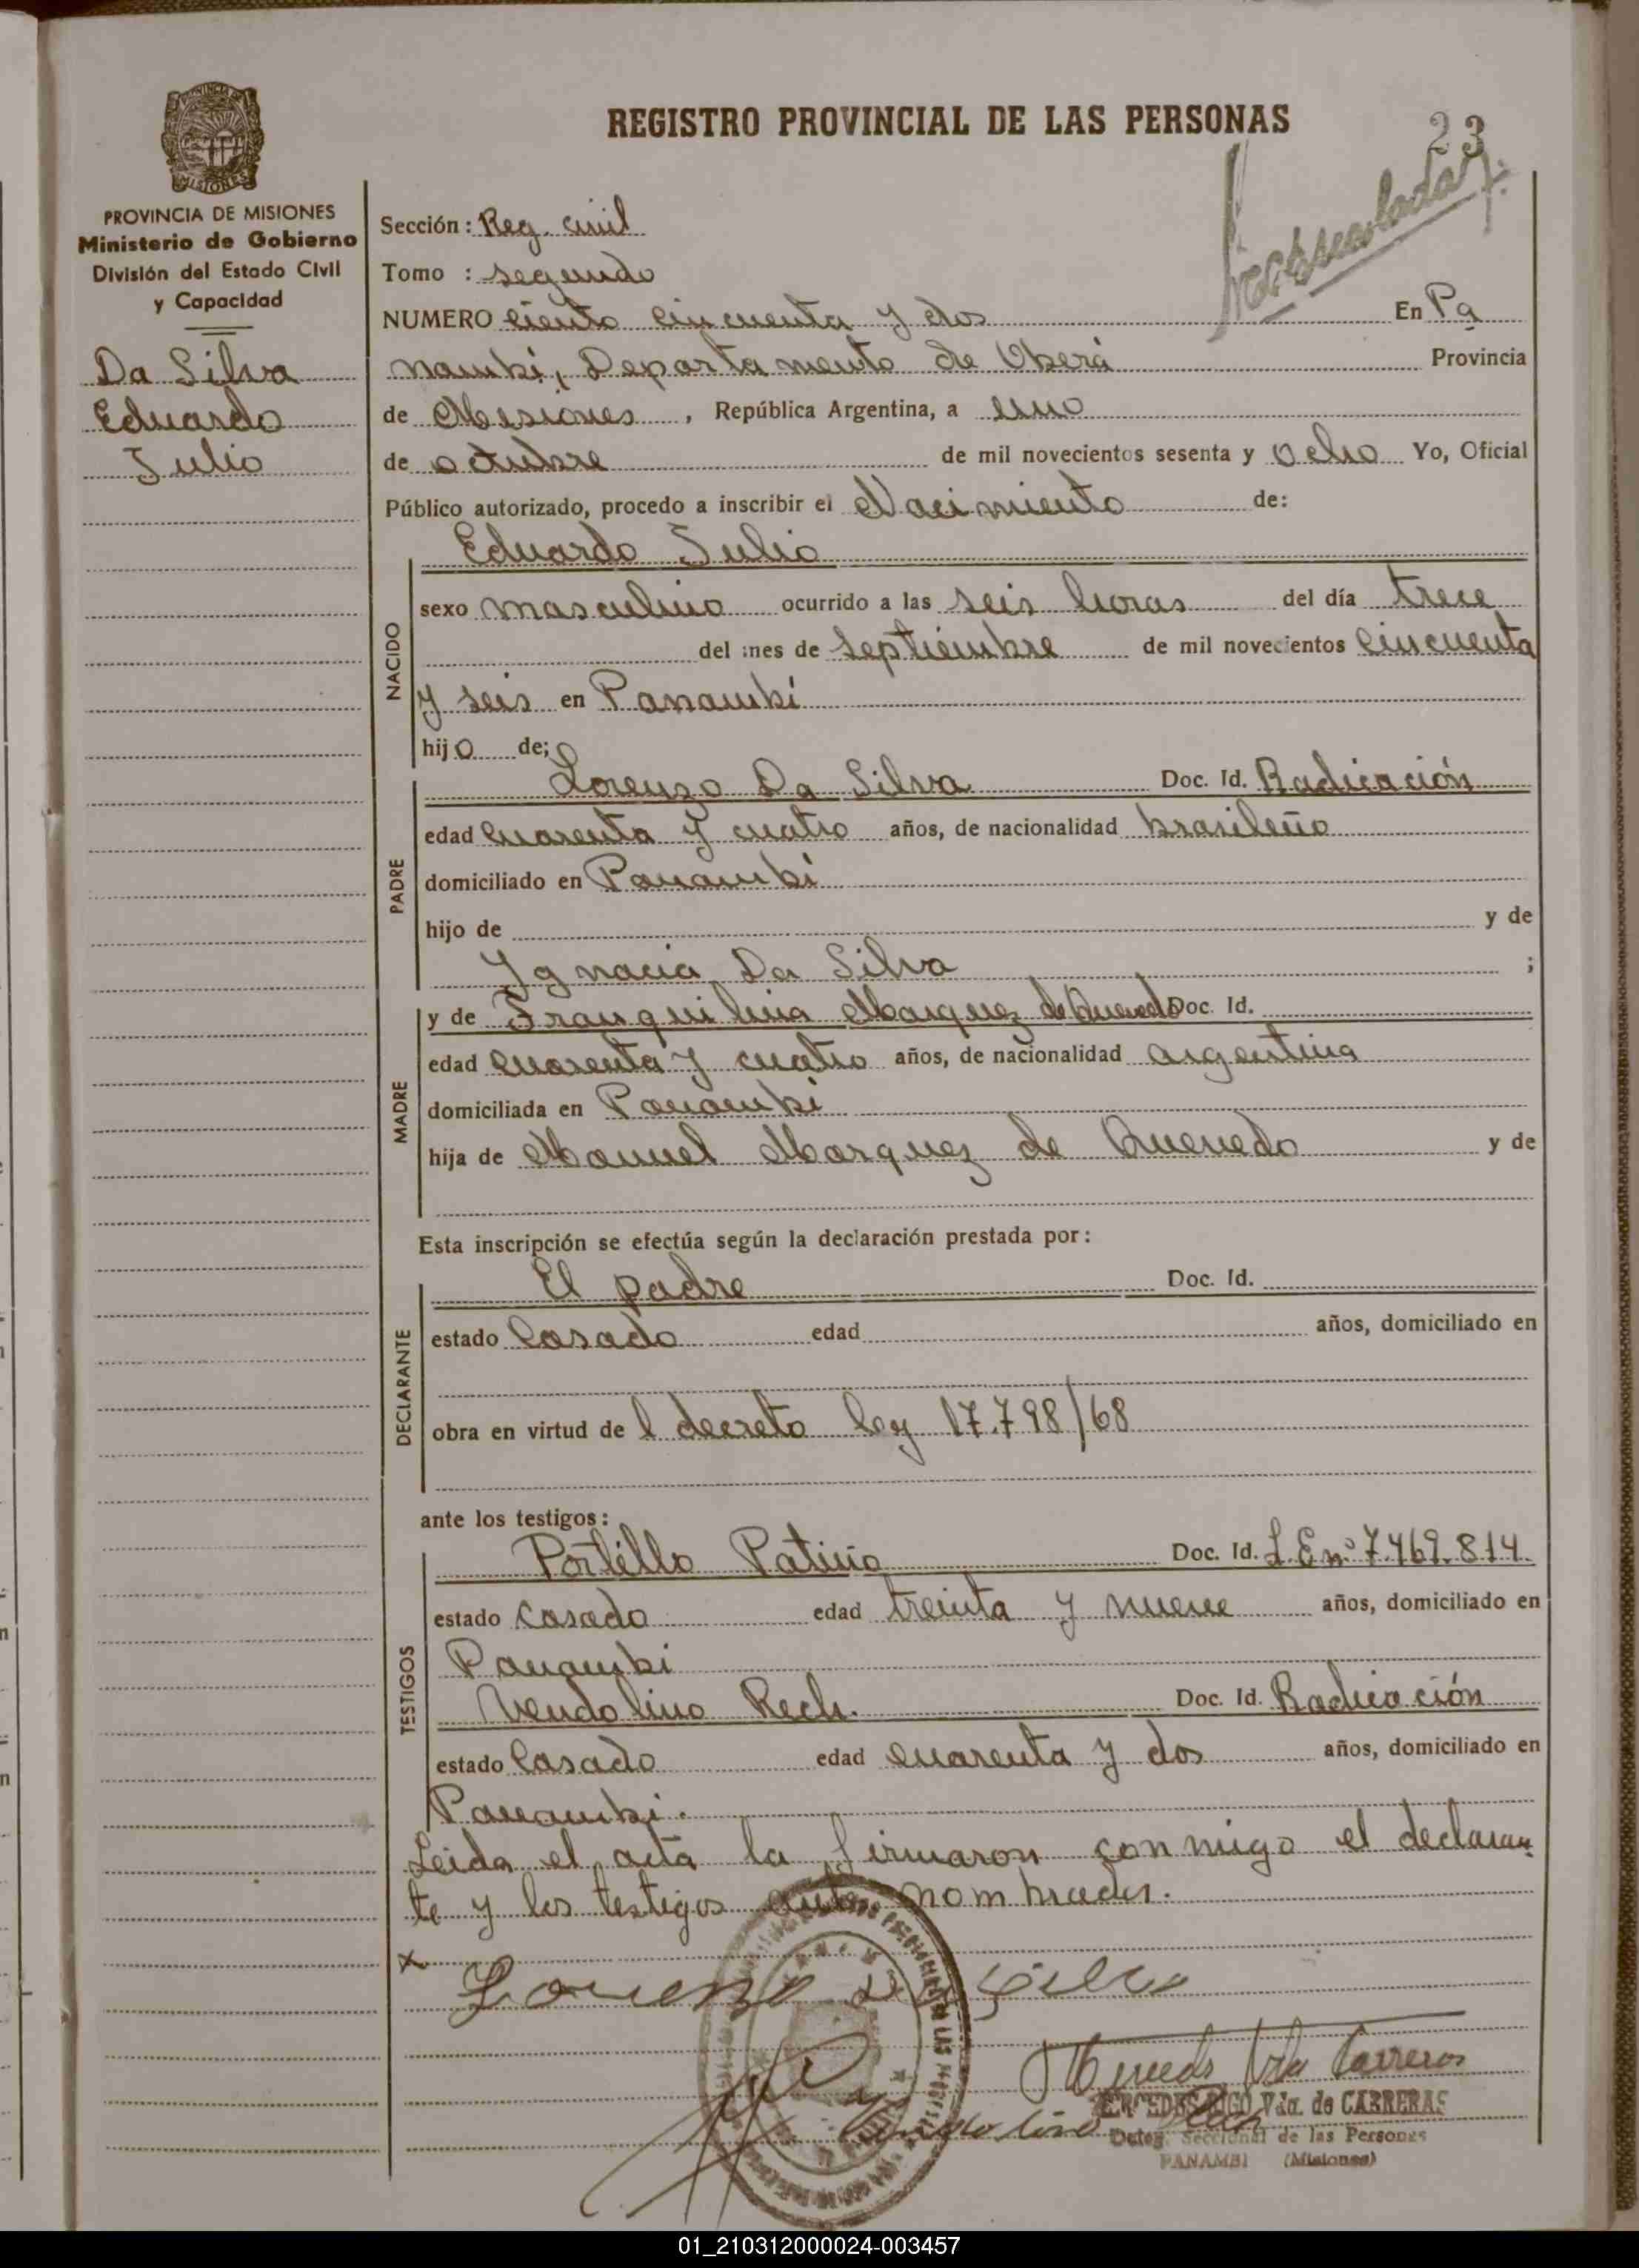 REGISTRO PROVINCIAL DE LAS PERSONAS
23
MISIONES
PROVINCIA DE MISIONES
Ministerio de Gobierno
División del Estado Civil
y Capacidad
Da Silva
Eduardo
Julio
Sección: Reg. civil
Tomo : segundo
NUMERO ciento cincuenta y dos En Pa
nambí, Departamento de Oberá Provincia
de Misiones, República Argentina, a uno
de octubre de mil novecientos sesenta y ocho Yo, Oficial
Público autorizado, procedo a inscribir el Nacimiento de:
NACIDO
Eduardo Julio
sexo masculino ocurrido a las seis horas del día trece
del mes de septiembre de mil novecientos cincuenta
y seis en Panambí
hijo de;
PADRE
Lorenzo Da Silva Doc. Id. Radicación
edad cuarenta y cuatro años, de nacionalidad brasileño
domiciliado en Panambí
hijo de y de
Ygnacia Da Silva ;
MADRE
y de Franquilina Marquez de Quevedo Doc. Id.
edad cuarenta y cuatro años, de nacionalidad argentina
domiciliada en Panambí
hija de Manuel Marquez de Quevedo y de
Esta inscripción se efectúa según la declaración prestada por:
DECLARANTE
El padre Doc. Id.
estado Casado edad años, domiciliado en
obra en virtud de l decreto ley 17.798/68
ante los testigos:
TESTIGOS
Portillo Patiño Doc. Id. L.E nº 7.469.814.
estado casado edad treinta y nueve años, domiciliado en
Panambí
Vendolino Rech. Doc. Id. Radicación
estado Casado edad cuarenta y dos años, domiciliado en
Panambí.
Leida el acta la firmaron conmigo el declaran
te y los testigos ante nombrados.
x
Lorenzo da Silva
MERCEDES Vda. de CABRERAS
Deleg. Seccional de las Personas
PANAMBI (Misiones)
01_210312000024-003457